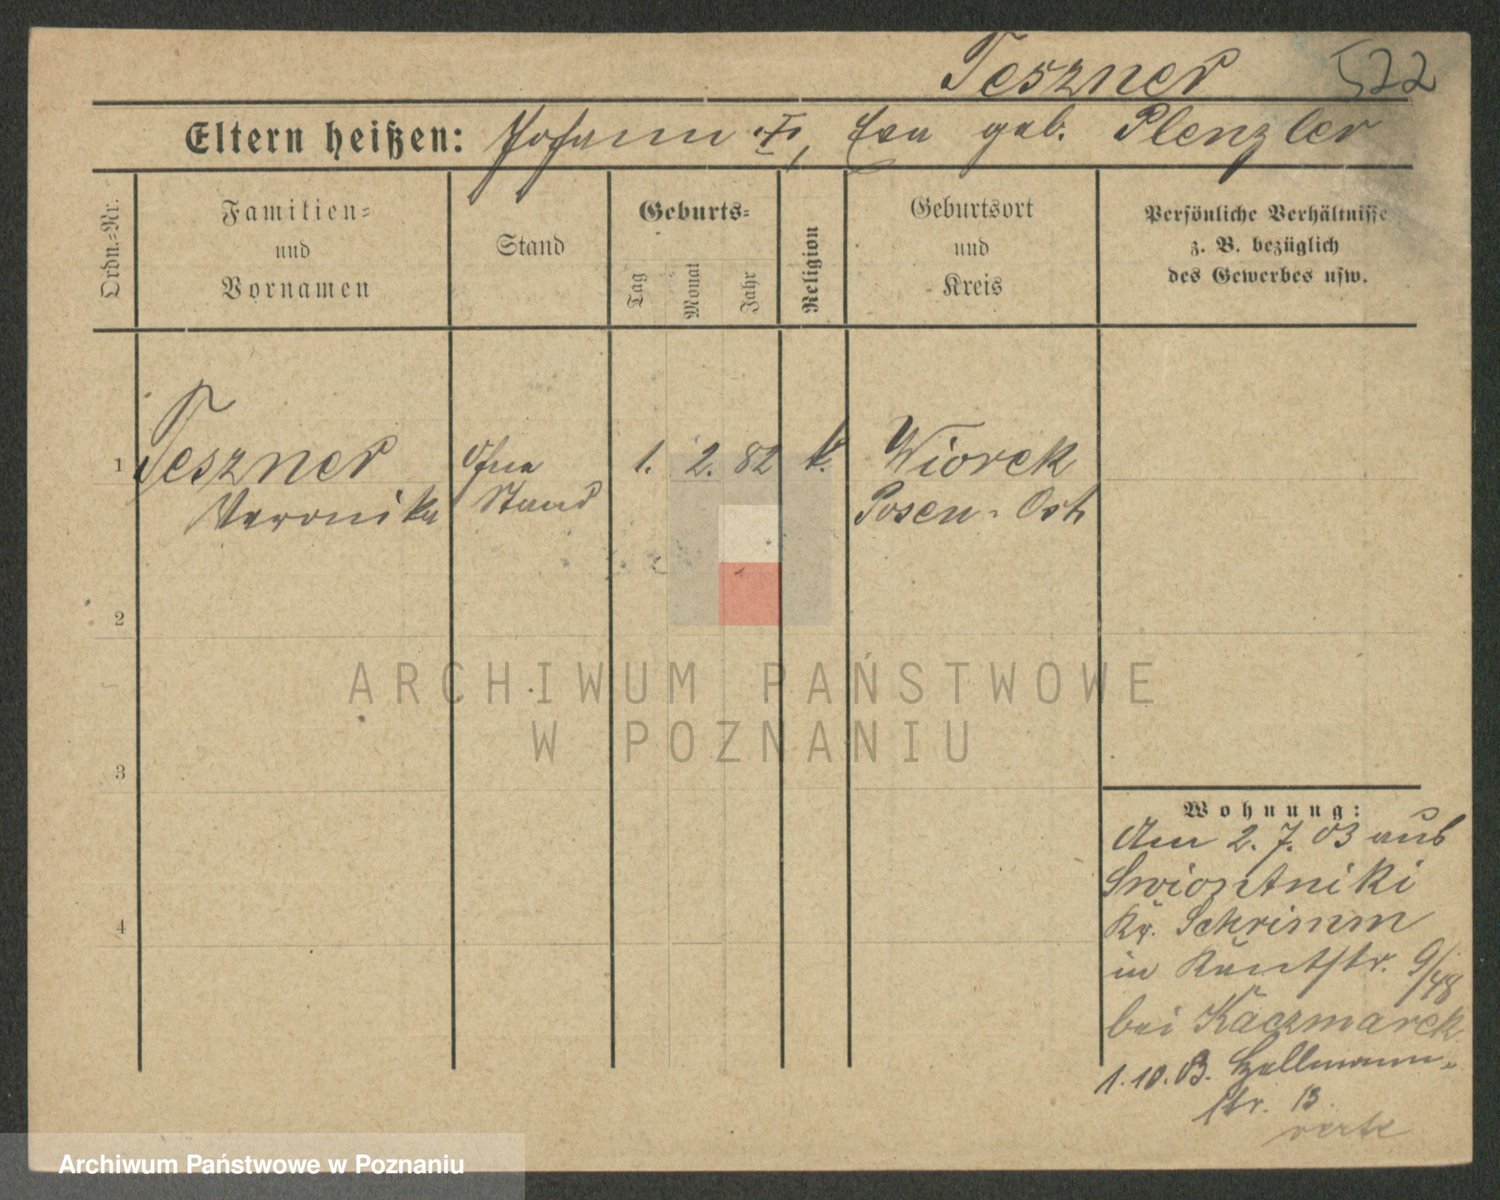 Teszner 522
Eltern heißen: Johann †, Eva geb. Plenzler
Ordn.-Nr.
Familien-
und
Vornamen
Stand
Geburts-
Tag
Monat
Jahr
Religion
Geburtsort
und
Kreis
Persönliche Verhältnisse
z. B. bezüglich
des Gewerbes usw.
1 Teszner ohne 1. 2. 82 k. Wiorek
Veronika Stand Posen-Ost
2
3
4
ARCHIWUM PAŃSTWOWE
W POZNANIU
Wohnung:
Am 2. 7. 03 aus
Swiontniki
Kr. Schrimm
in 9/48
bei Kaczmarek
1. 10. 03.
str. 13
verte
Archiwum Państwowe w Poznaniu